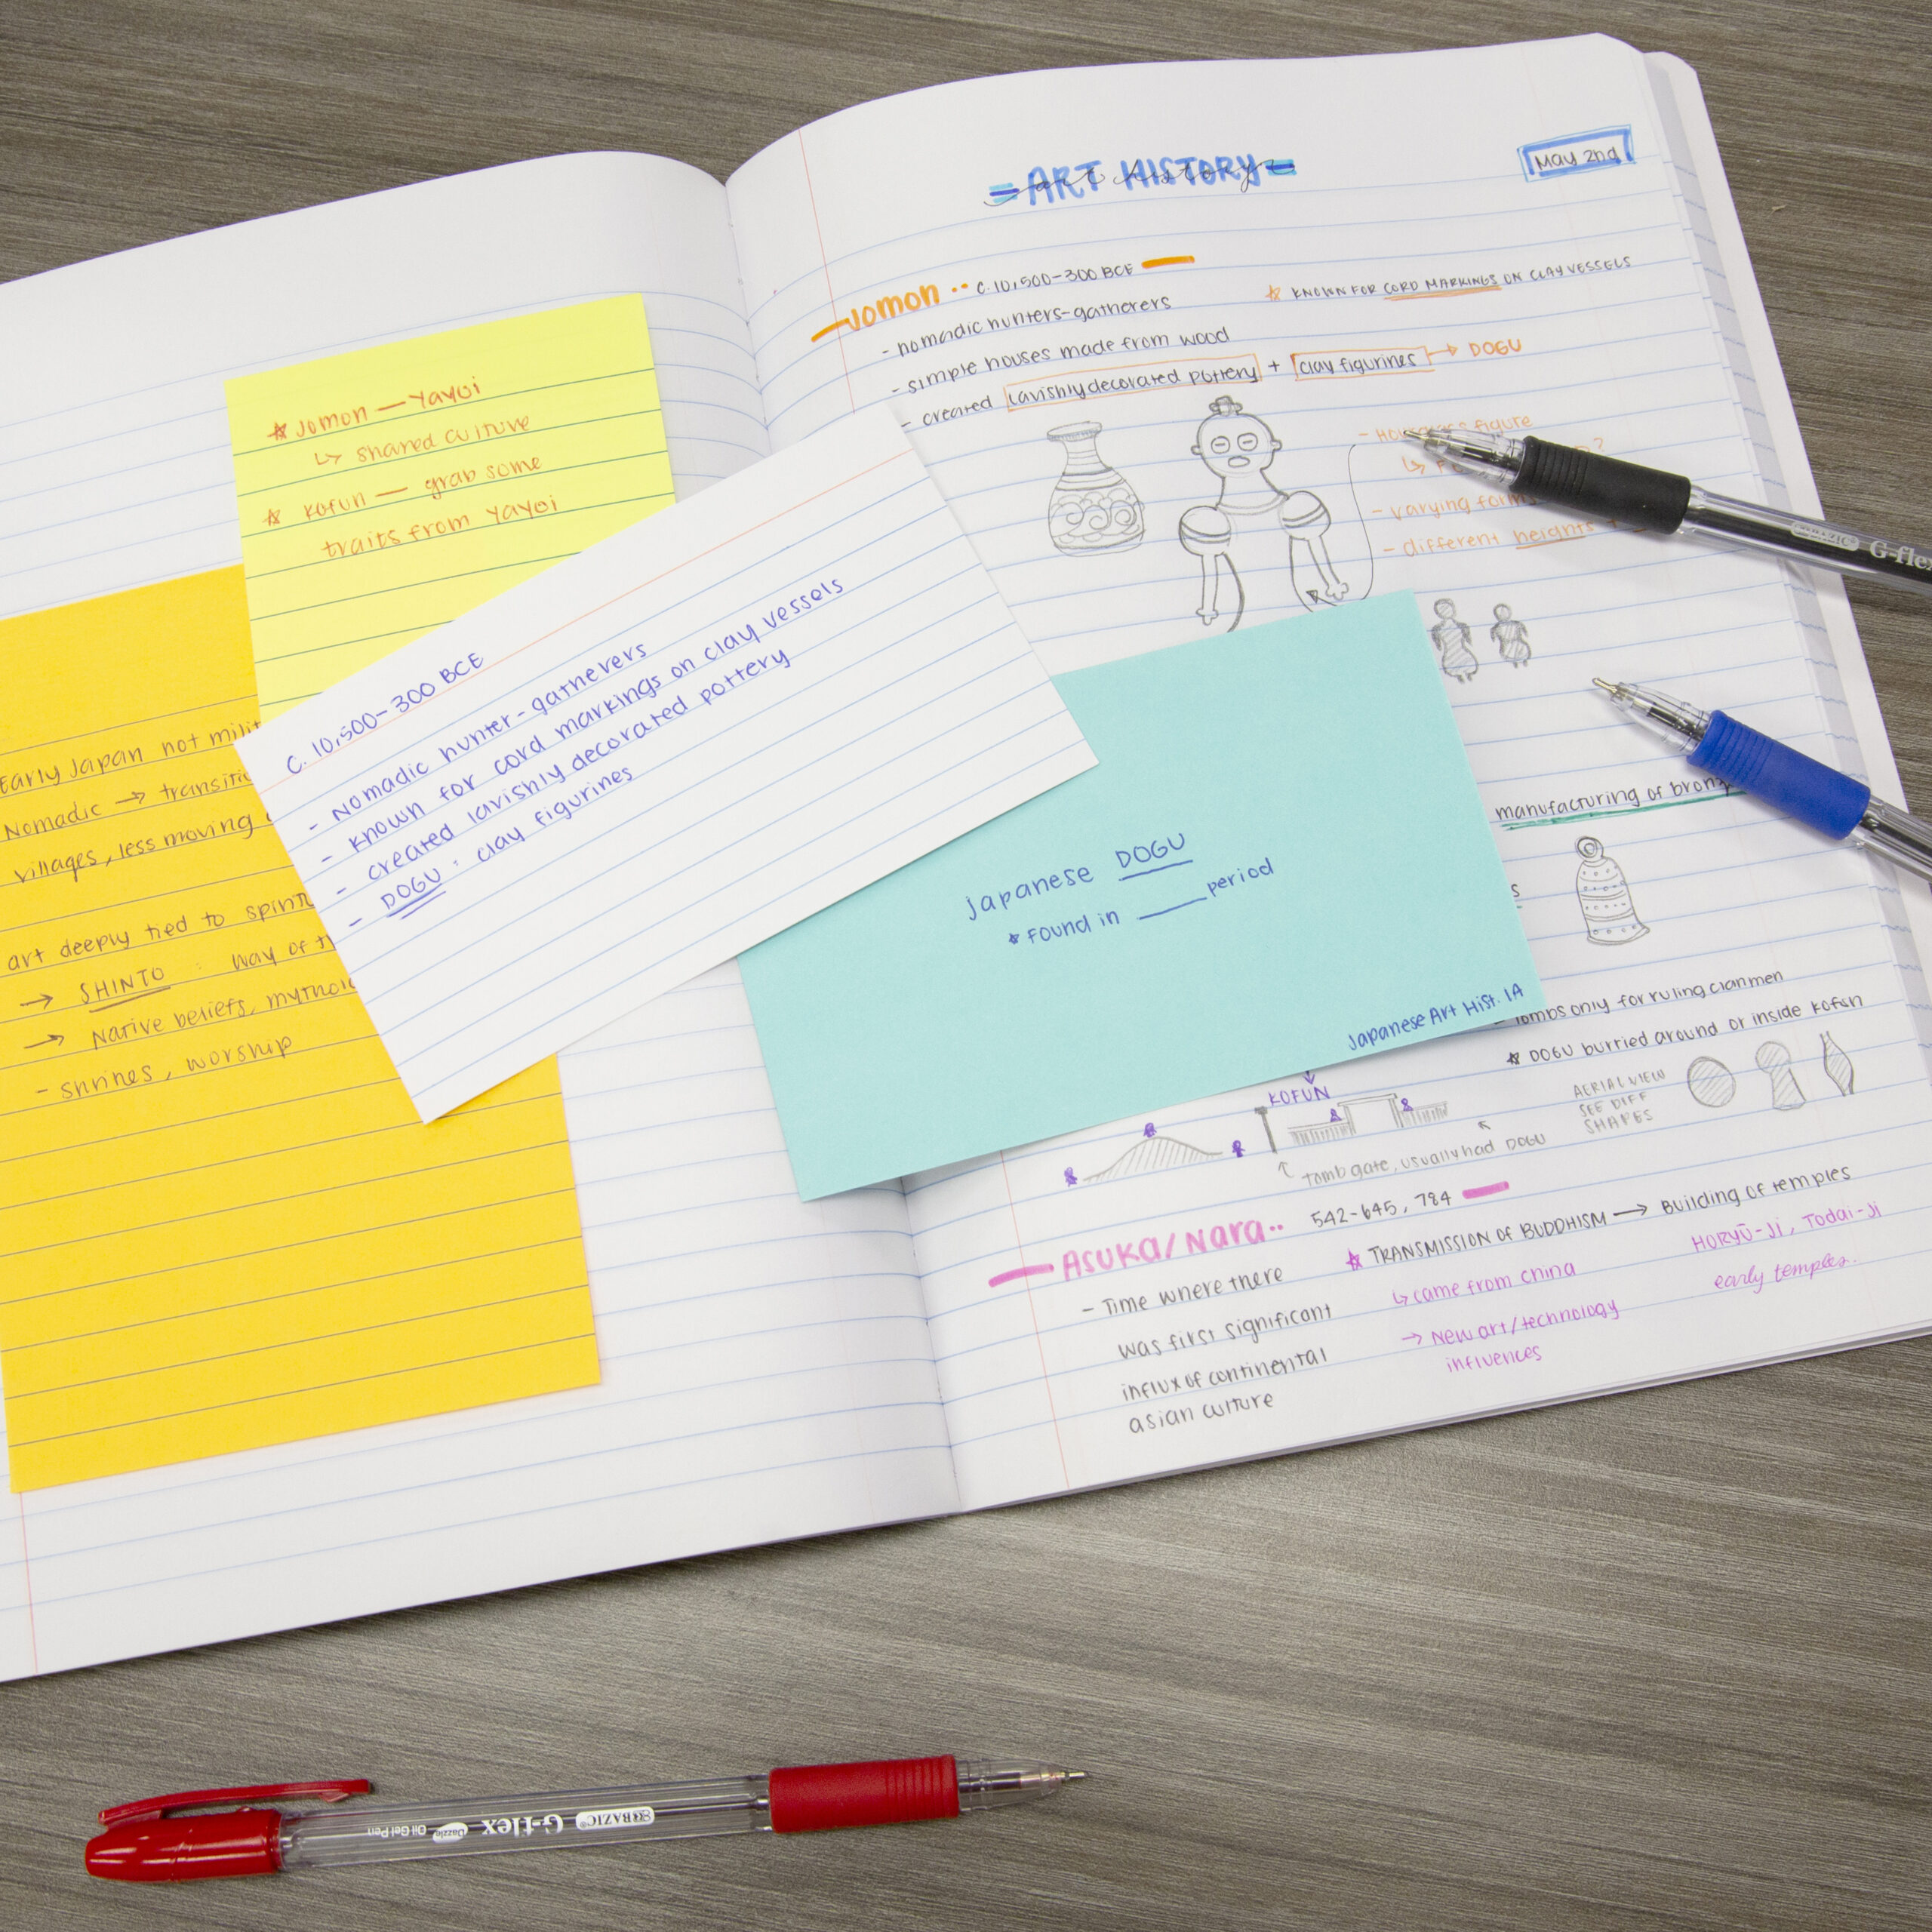 ART HISTORY
art history
May 2nd
Jomon ·· C. 10,500-300 BCE
★ KNOWN FOR CORD MARKINGS ON CLAY VESSELS
- nomadic hunters-gatherers
- simple houses made from wood
- created lavishly decorated pottery + clay figurines → DOGU
figure
- varying
- different heights
manufacturing of
tombs only for ruling clanmen
★ DOGU burried around or inside Kofun
AERIAL VIEW
SEE DIFF
SHAPES
KOFUN
tomb gate, usually had DOGU
ASUKA/Nara·· 542-645, 784
- Time where there
was first significant
influx of continental
asian culture
★ TRANSMISSION OF BUDDHISM → Building of temples
↳ came from china
→ New art/technology
influences
HORYŪ-Ji, Todai-Ji
early temples.
★ Jomon — Yayoi
↳ shared culture
★ Kofun — grab some
traits from Yayoi
Early Japan not
Nomadic →
villages, less moving
art deeply tied to
→ SHINTO : way of
→ Native beliefs,
- shrines, worship
C. 10,500-300 BCE
- Nomadic hunter-gatherers
- known for cord markings on clay vessels
- created lavishly decorated pottery
- DOGU : clay figurines
Japanese DOGU
★ found in ____ period
Japanese Art Hist. 1A
BAZIC G-flex
BAZIC G-flex Dazzle Oil Gel Pen